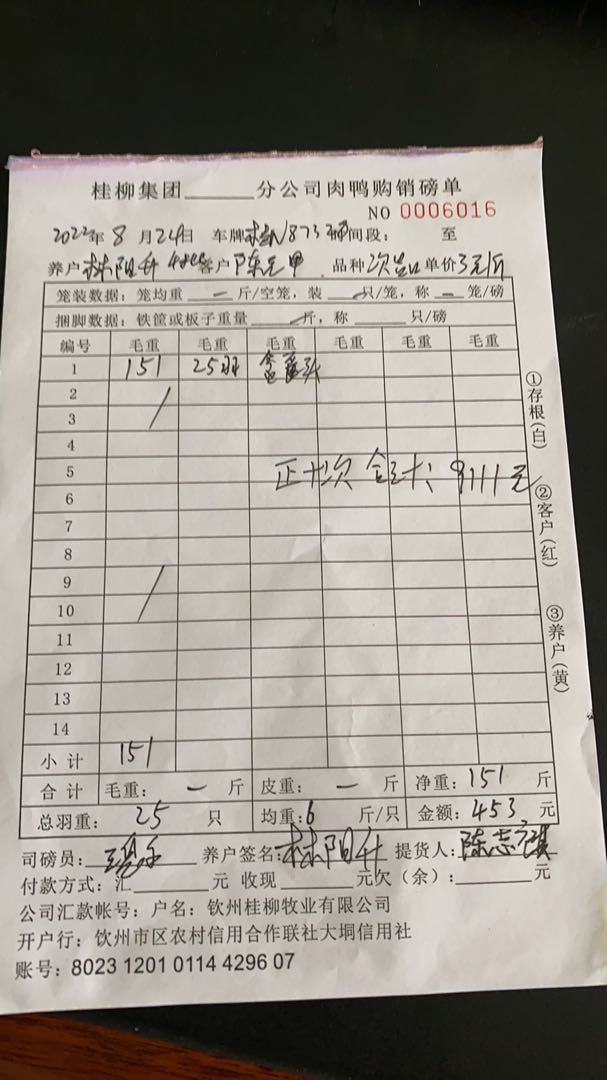 桂柳集团______分公司肉鸭购销磅单
NO 0006016
2022年 8 月 24日 车牌 873 时间段： 至
养户 林阳升 客户 陈元甲 品种 次品 单价 3元/斤
笼装数据：笼均重 — 斤/空笼，装 — 只/笼，称 — 笼/磅
捆脚数据：铁筐或板子重量 — 斤，称 只/磅
编号 毛重 毛重 毛重 毛重 毛重 毛重
1 151 25羽
2
3
4
5 正+次 合计：9111元
6
7
8
9
10
11
12
13
14
小计 151
合计 毛重： — 斤 皮重： — 斤 净重：151 斤
总羽重： 25 只 均重：6 斤/只 金额：453 元
司磅员： 养户签名：林阳升 提货人：陈志祺
付款方式：汇______元 收现______元欠（余）：______元
公司汇款帐号：户名：钦州桂柳牧业有限公司
开户行：钦州市区农村信用合作联社大垌信用社
账号：8023 1201 0114 4296 07
①存根（白）
②客户（红）
③养户（黄）